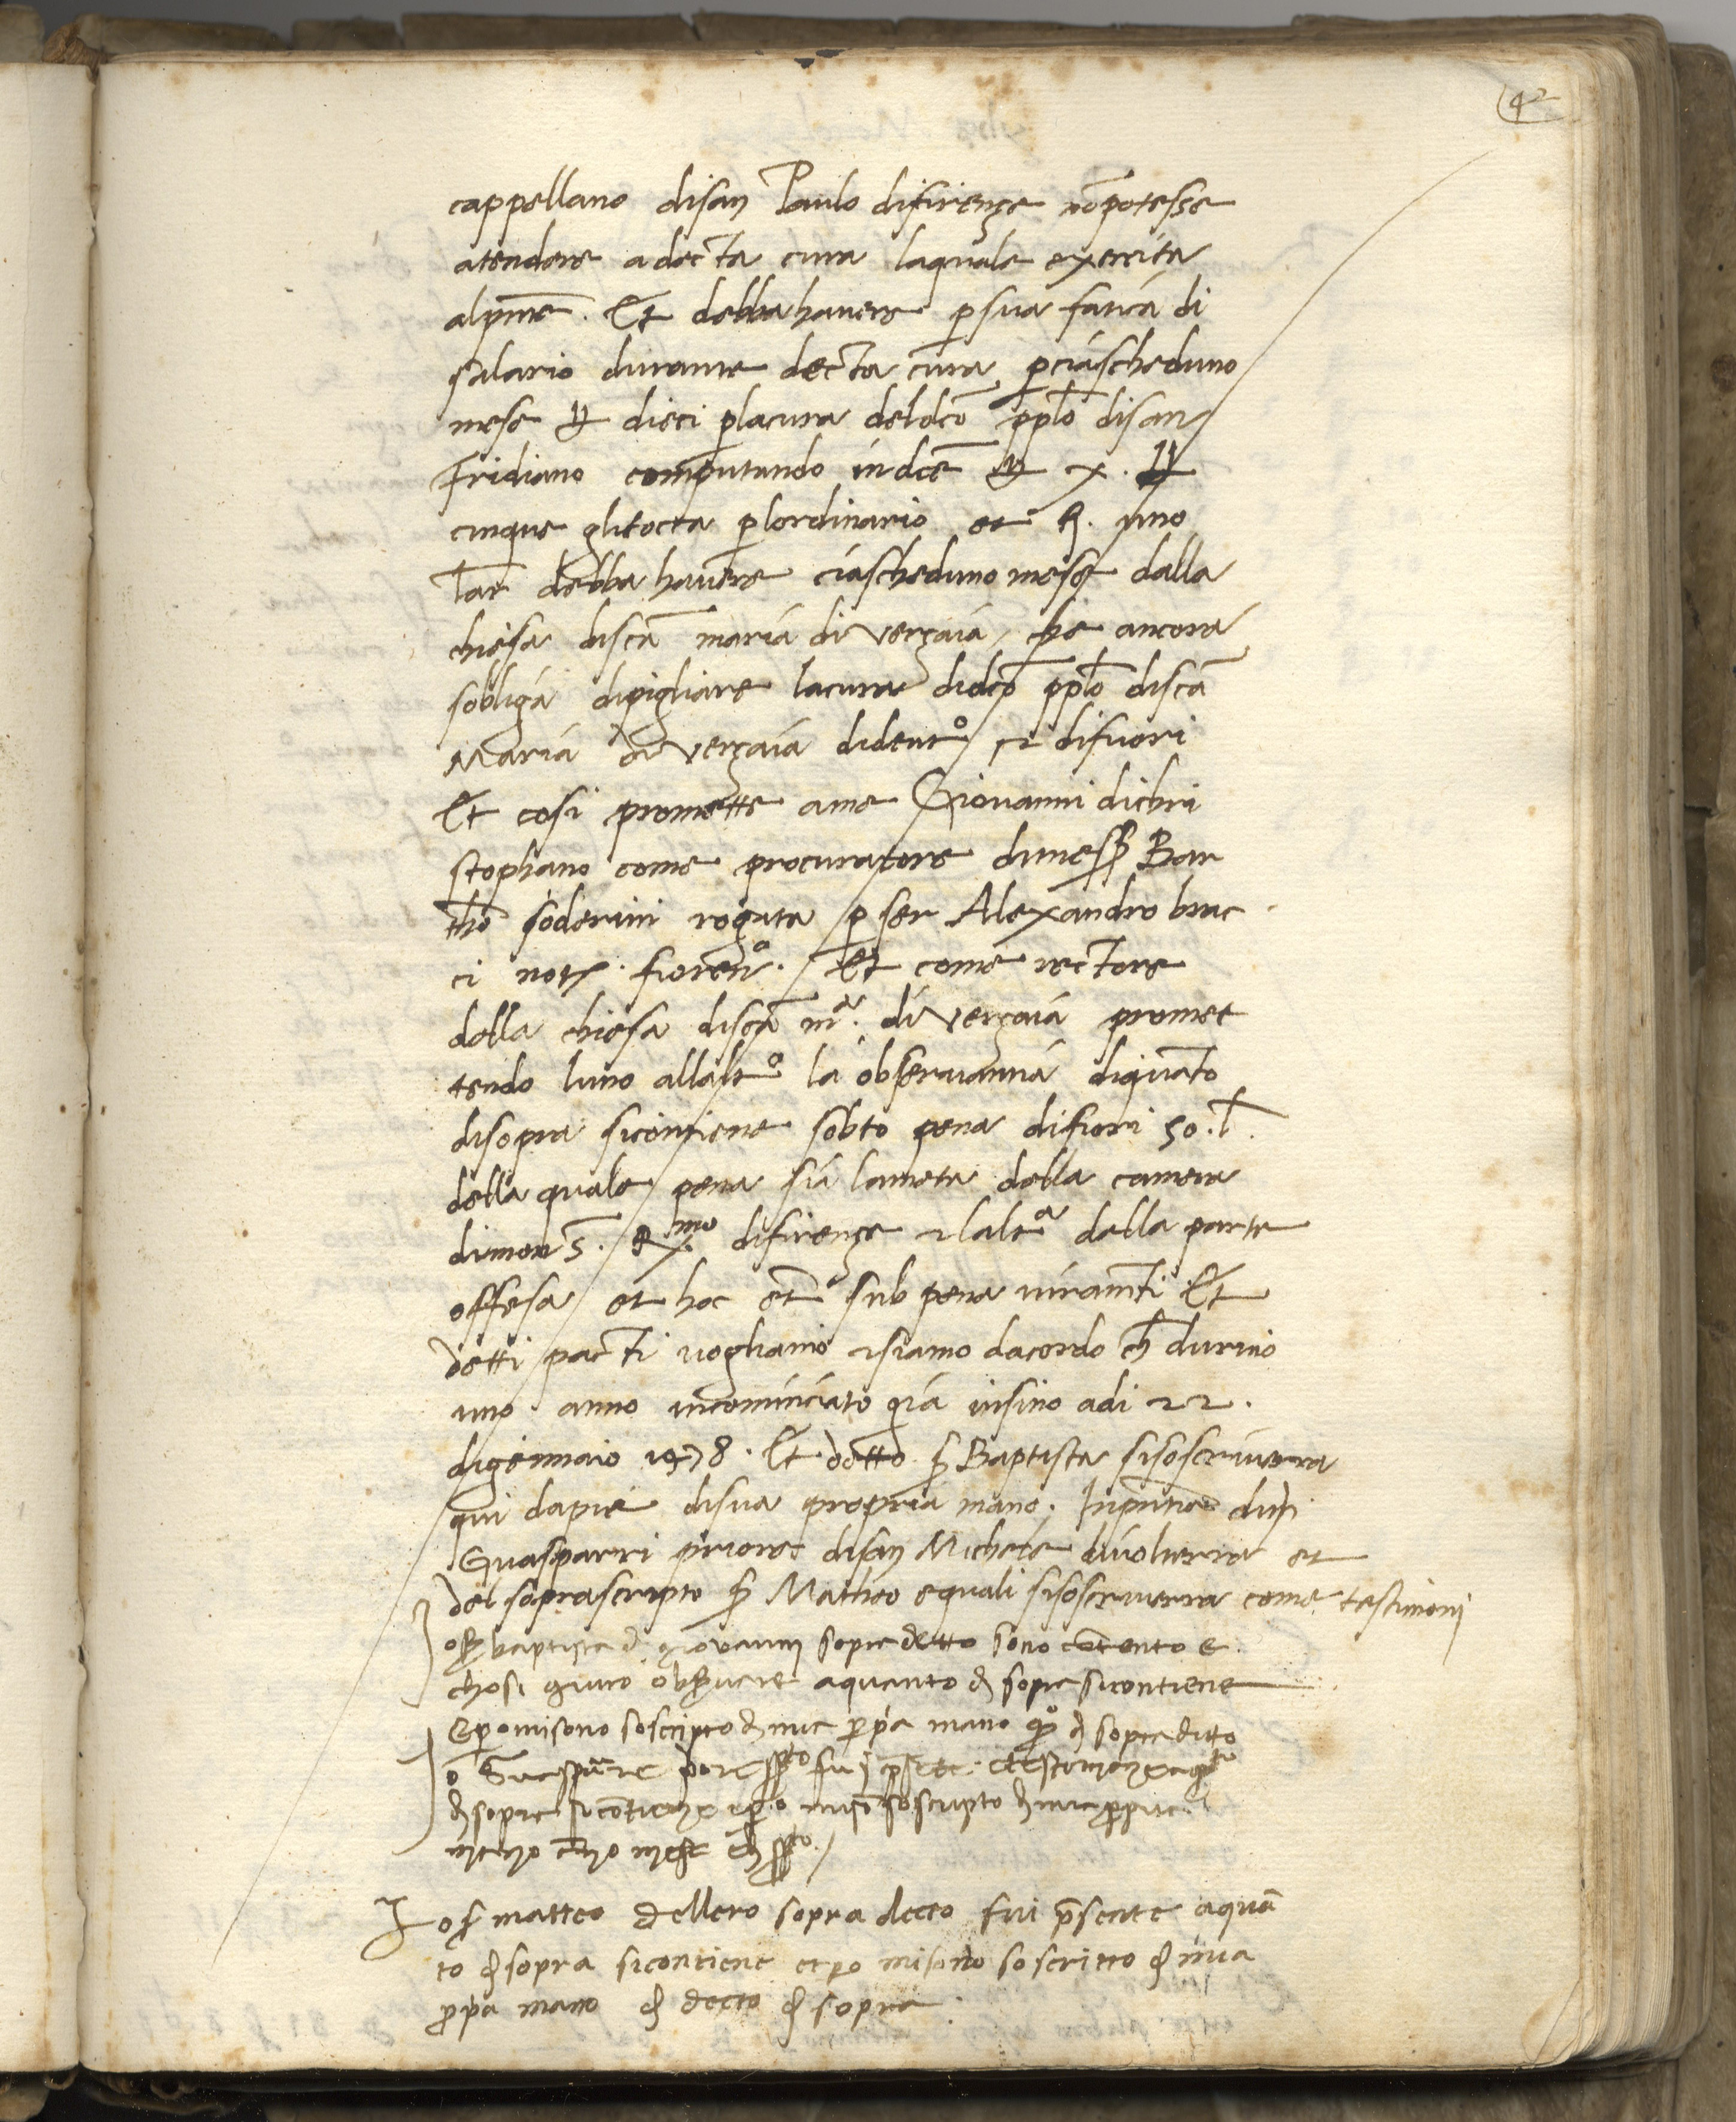 42
cappellano disan Paulo difirençe nō potesse
atendere a decta cura laquale exercita
alpn̄te. Et debba havere p sua fatica di
salario durante decta cura p ciascheduno
mese ₶ dieci p lacura deldc̄o ppl̄o disan
Fridiano computando in dc̄e ₶ x. ₶
cinque gli tocca p lordinario et R. uno
lar̄ debba havere ciascheduno mese dalla
chiesa disc̄a maria di verçaia, che ancora
sobliga dipigliare lacura didc̄o ppl̄o disc̄a
Maria di verçaia didentº et difuori
Et cosi promette a me Giovanni dichri
stophano come procuratore dimess̄ Bar
thō soderini rogata p ser Alexandro brac
ci not. fiorentº. Et come rectore
della chiesa disc̄a mª. di verçaia promet
tendo luno allaltº la observantia diquāto
disopra sicontiene sobto pena difiori 50. l̄.
della quale pena sia lameta della camera
dimon s. Rx.mo difirençe et laltª della parte
offesa et hoc et̄ sub pena iuramti Et
detti pacti vogliamo et siamo dacordo ch̄ durino
uno anno incominciato gia insino adi 22.
digennaio 1478. Et detto s̄ Baptista sisoscriverra
qui dapie disua propria mano. In pn̄tia di s̄
Guasparri priore disan Michele divolterra et
del soprascripto s̄ Matheo equali sisoscriverra come testimonj
Io s̄ baptista d giovannj sopra detto sono cōtento e
chosi giuro observare a quanto d sopra sicontiene
E po misono soscripto d mia ppa mano qº d sopra ditto
Io Guasparre pore spto fui psente et testimonx a qto
d sopra si cōtienx e po miso soscripto d mia ppria
mano āno mese e dj spto.
Io s̄ matteo dellero sopra decto fui p̄sente aquā
to d sopra sicontiene et po misono soscritto d mia
ppa mano d decto d sopra.